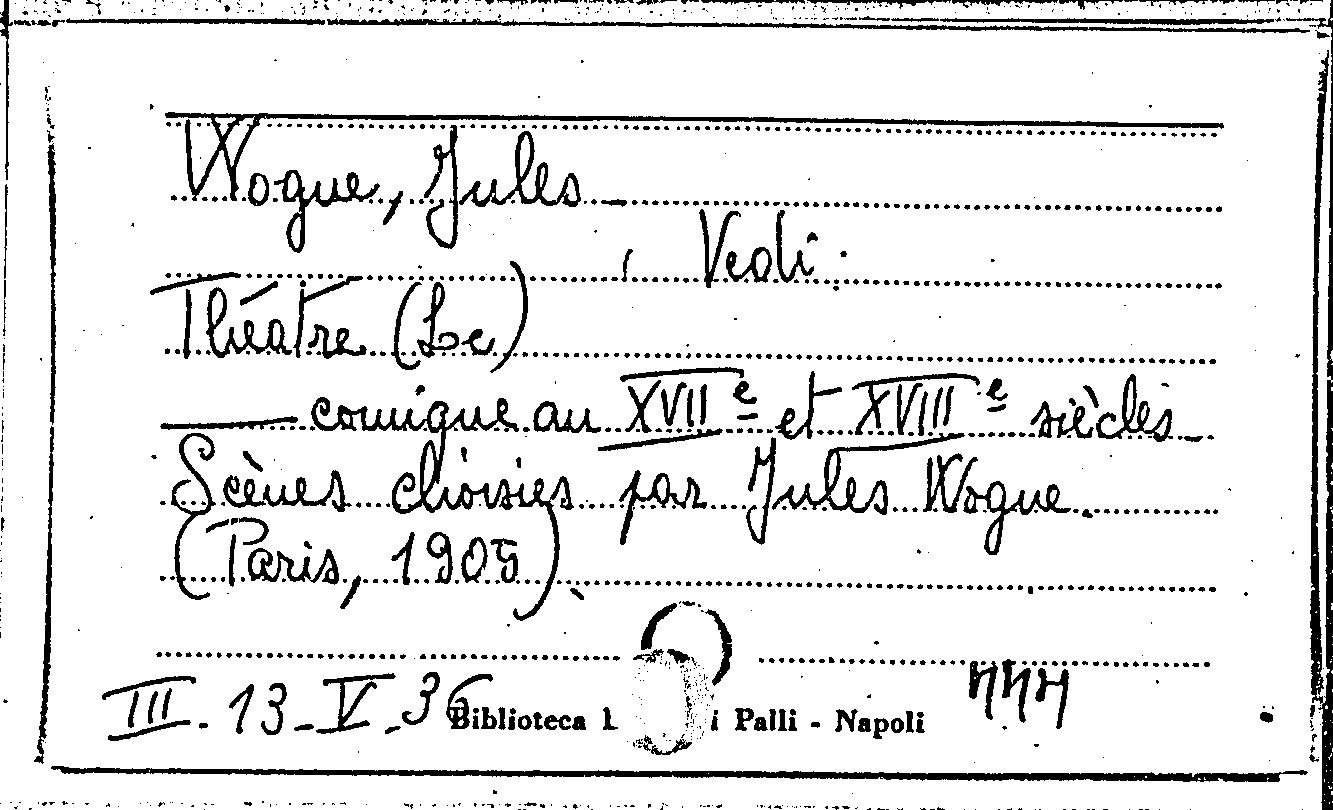 Wogue, Jules -
Vedi:
Théâtre (Le)
—— comique au XVIIe et XVIIIe siècles -
Scènes choisies par Jules Wogue.
(Paris, 1905).
III - 13 - V - 36
Biblioteca L i Palli - Napoli